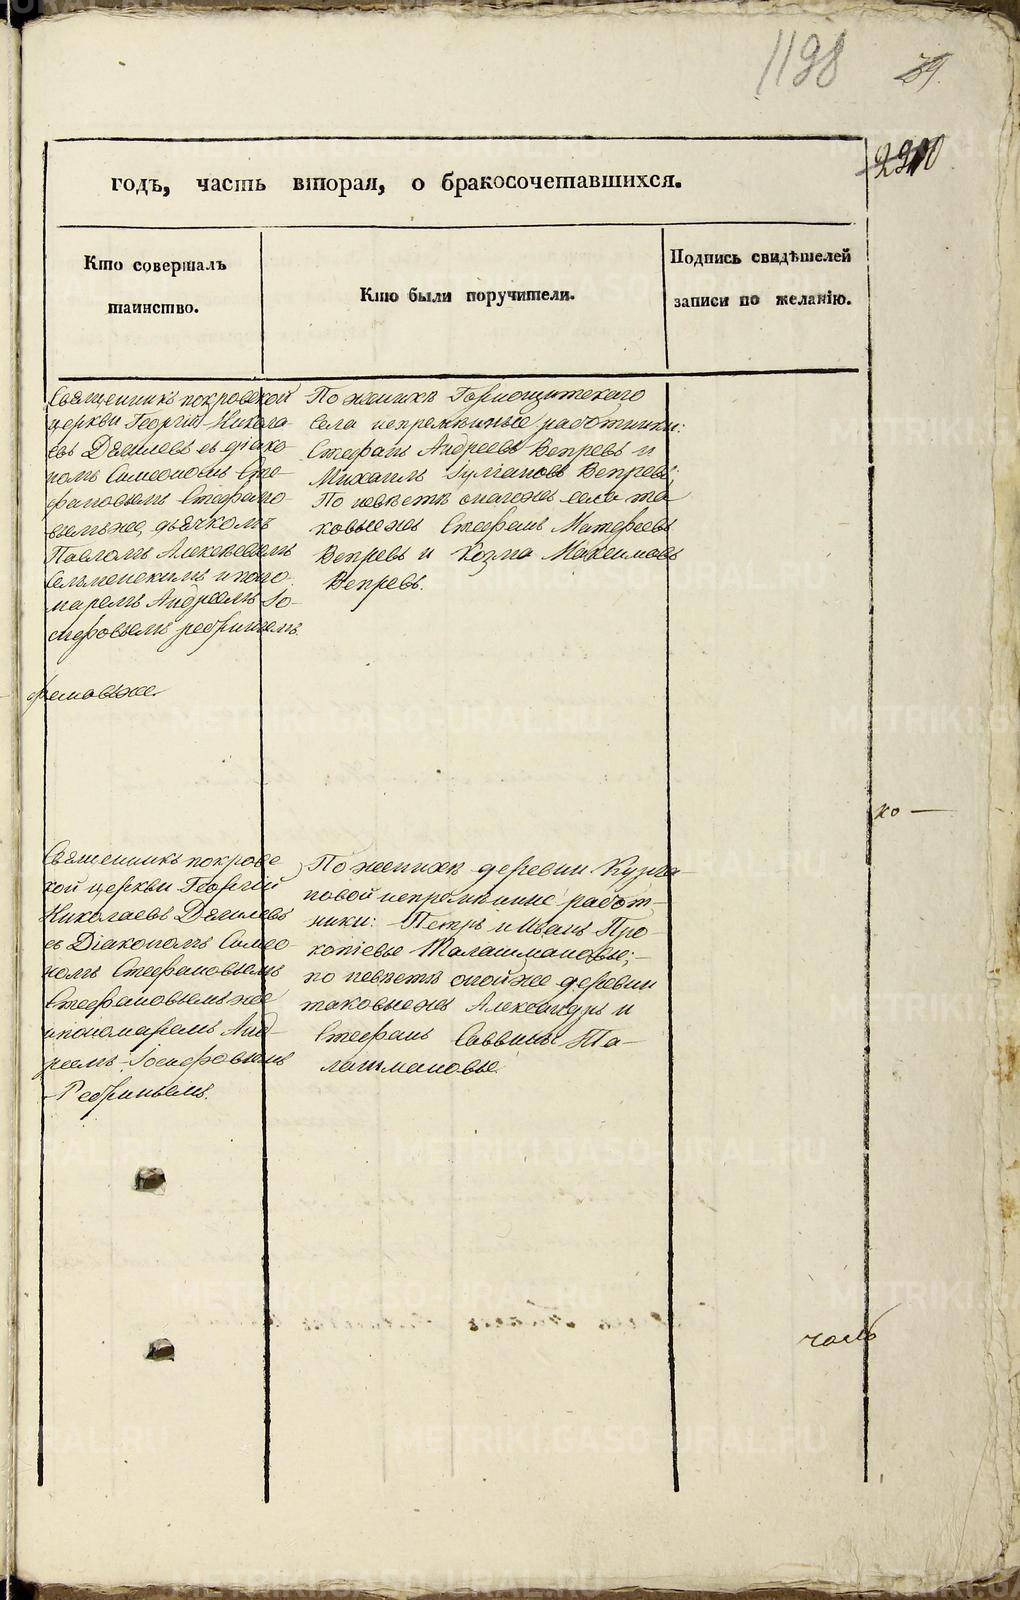 1198
39.
годъ, часть вторая, о бракосочетавшихся.
Кто совершалъ
таинство.
Кто были поручители.
Подпись свидѣтелей
записи по желанію.
Священникъ покровской
церкви Георгій Никола-
евъ Дягилевъ съ діако-
номъ Симеономъ Сте-
фановымъ Стефано-
вымъ же, дьячкомъ
Павломъ Алексѣевымъ
и поно-
маремъ Андреемъ Іо-
сифовымъ Ребринымъ.
По женихѣ Горнощитскаго
села непремѣнные работники:
Стефанъ Андреевъ Вепревъ и
Михаилъ Іуліановъ Вепревъ;
По невѣстѣ онаго же села та
ковые же Стефанъ Матфеевъ
Вепревъ и Козма Максимовъ
Вепревъ.
ко —
Священникъ покровс
кой церкви Георгій
Николаевъ Дягилевъ
съ Діакономъ Симео-
номъ Стефановымъ
Стефановымъ же
и пономаремъ Анд-
реемъ Іосифовымъ
Ребринымъ.
По женихѣ деревни Курга-
новой непремѣнные работ-
ники: Петръ и Иванъ Про-
копіевы Талашмановы;
по невѣстѣ оной же деревни
таковые же Александръ и
Стефанъ Саввины Та-
лашмановы.
часть
METRIKI.GASO-URAL.RU